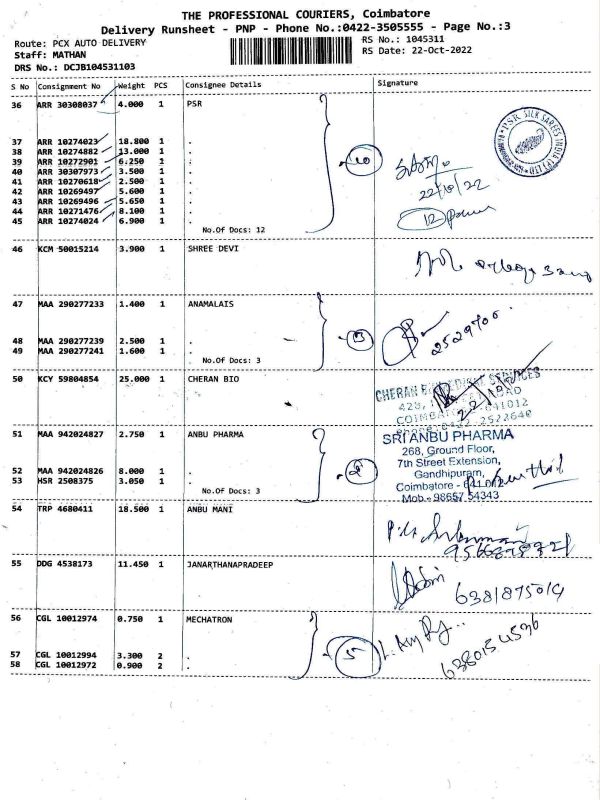 THE PROFESSIONAL COURIERS, Coimbatore
Delivery Runsheet - PNP - Phone No.:0422-3505555 - Page No.:3
Route: PCX AUTO DELIVERY
RS No.: 1045311
Staff: MATHAN
RS Date: 22-Oct-2022
DRS No.: DCJB104531103
S No Consignment No Weight PCS Consignee Details Signature
36 ARR 30308037 4.000 1 PSR
37 ARR 10274023 18.800 1 .
38 ARR 10274882 13.000 1 .
39 ARR 10272901 6.250 1 .
40 ARR 30307973 3.500 1 .
41 ARR 10270618 2.500 1 .
42 ARR 10269497 5.600 1 .
43 ARR 10269496 5.650 1 .
44 ARR 10271476 8.100 1 .
45 ARR 10274024 6.900 1 .
No.Of Docs: 12
10
22/10/22
P.S.R. SILK SAREES INDIA (P) LTD
46 KCM 50015214 3.900 1 SHREE DEVI
47 MAA 290277233 1.400 1 ANAMALAIS
48 MAA 290277239 2.500 1 .
49 MAA 290277241 1.600 1 .
No.Of Docs: 3
3
50 KCY 59804854 25.000 1 CHERAN BIO
51 MAA 942024827 2.750 1 ANBU PHARMA
52 MAA 942024826 8.000 1 .
53 HSR 2508375 3.050 1 .
No.Of Docs: 3
SRI ANBU PHARMA
268, Ground Floor,
7th Street Extension,
Gandhipuram,
Coimbatore - 641 012
Mob.- 98657 54343
54 TRP 4680411 18.500 1 ANBU MANI
55 DDG 4538173 11.450 1 JANARTHANAPRADEEP
6381875019
56 CGL 10012974 0.750 1 MECHATRON
57 CGL 10012994 3.300 2 .
58 CGL 10012972 0.900 2 .
5